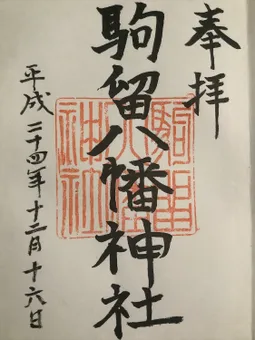 奉拝
駒留八幡神社
平成二十四年十二月十六日
駒留八幡神社